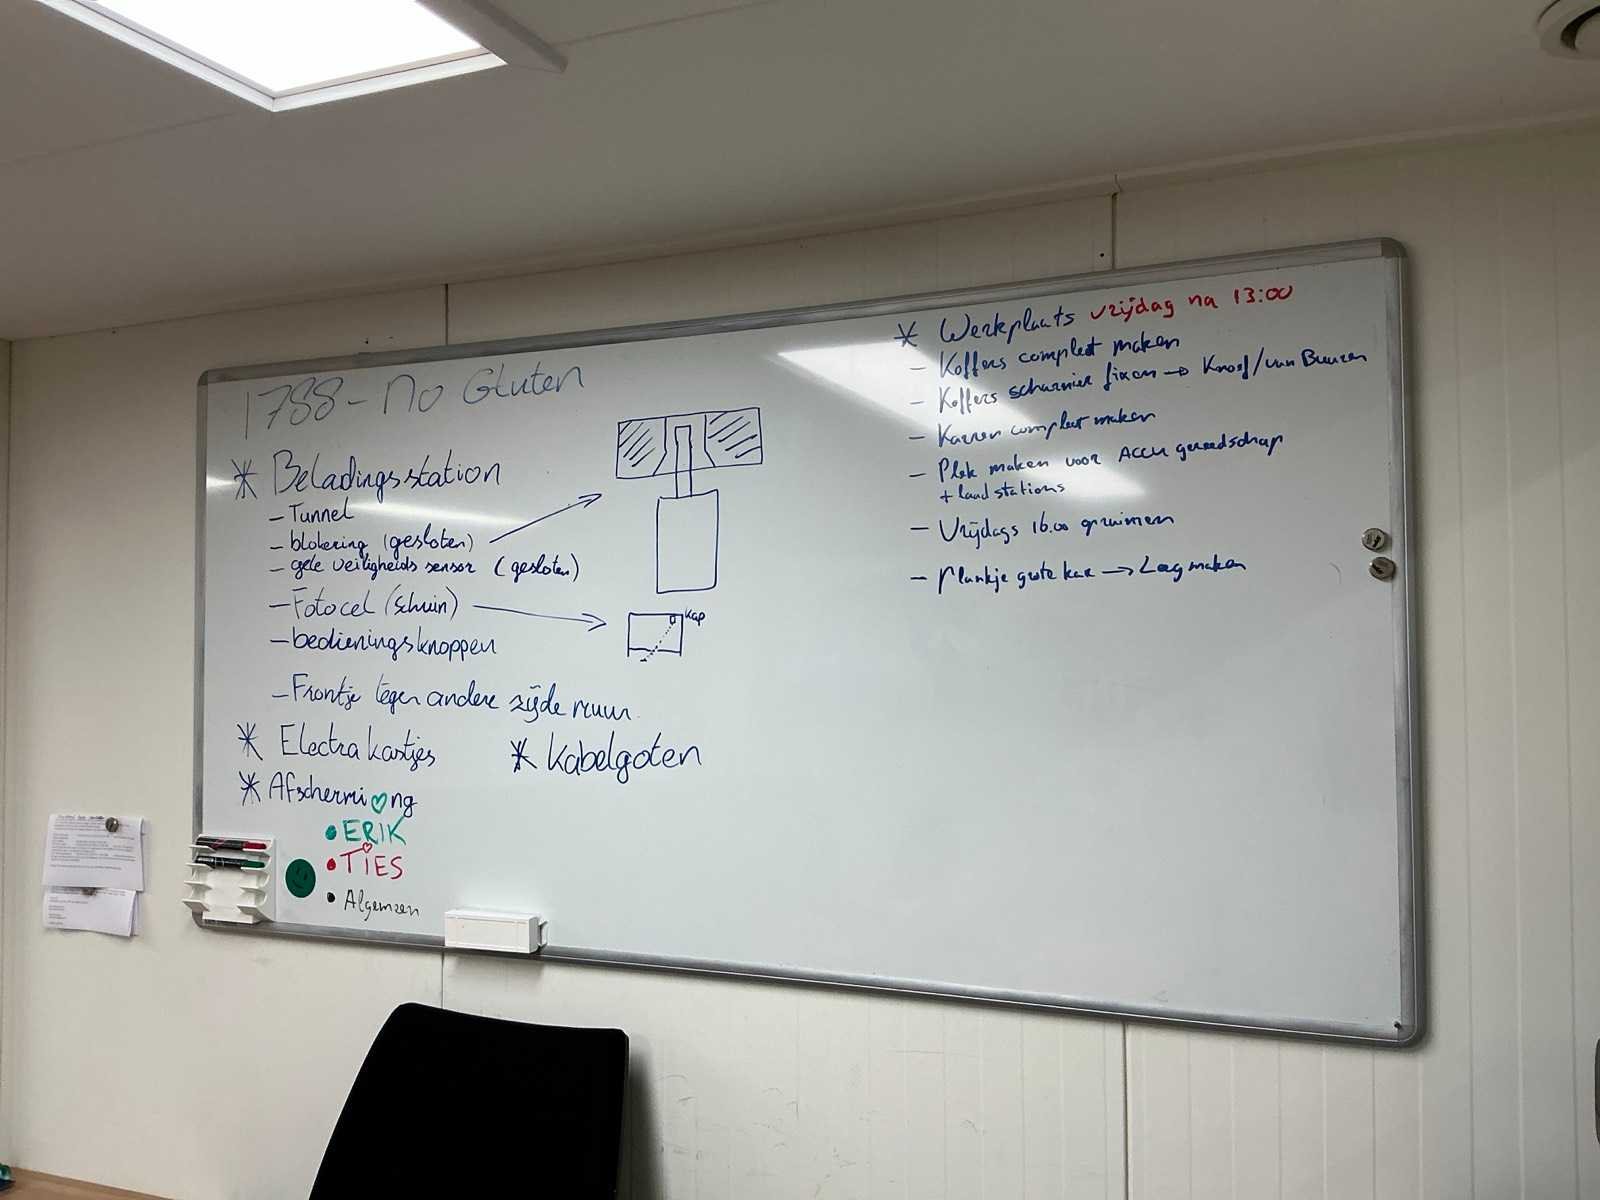 1788 - No Gluten
* Beladingsstation
- Tunnel
- blokering (gesloten)
- gele veiligheids sensor (gesloten)
- Fotocel (schuin)
kap
- bedieningsknoppen
- Frontje tegen andere zijde muur.
* Electra kastjes
* Kabelgoten
* Afschermi♡ng
• ERIK
• TiES
• Algemeen
* Werkplaats vrijdag na 13:00
- Koffers compleet maken
- Koffers scharnier fixen → Knoef/van Buuren
- Karren compleet maken
- Plek maken voor ACCU gereedschap
+ laadstations
- Vrijdags 16.00 opruimen
- Plankje grote kar → Leeg maken